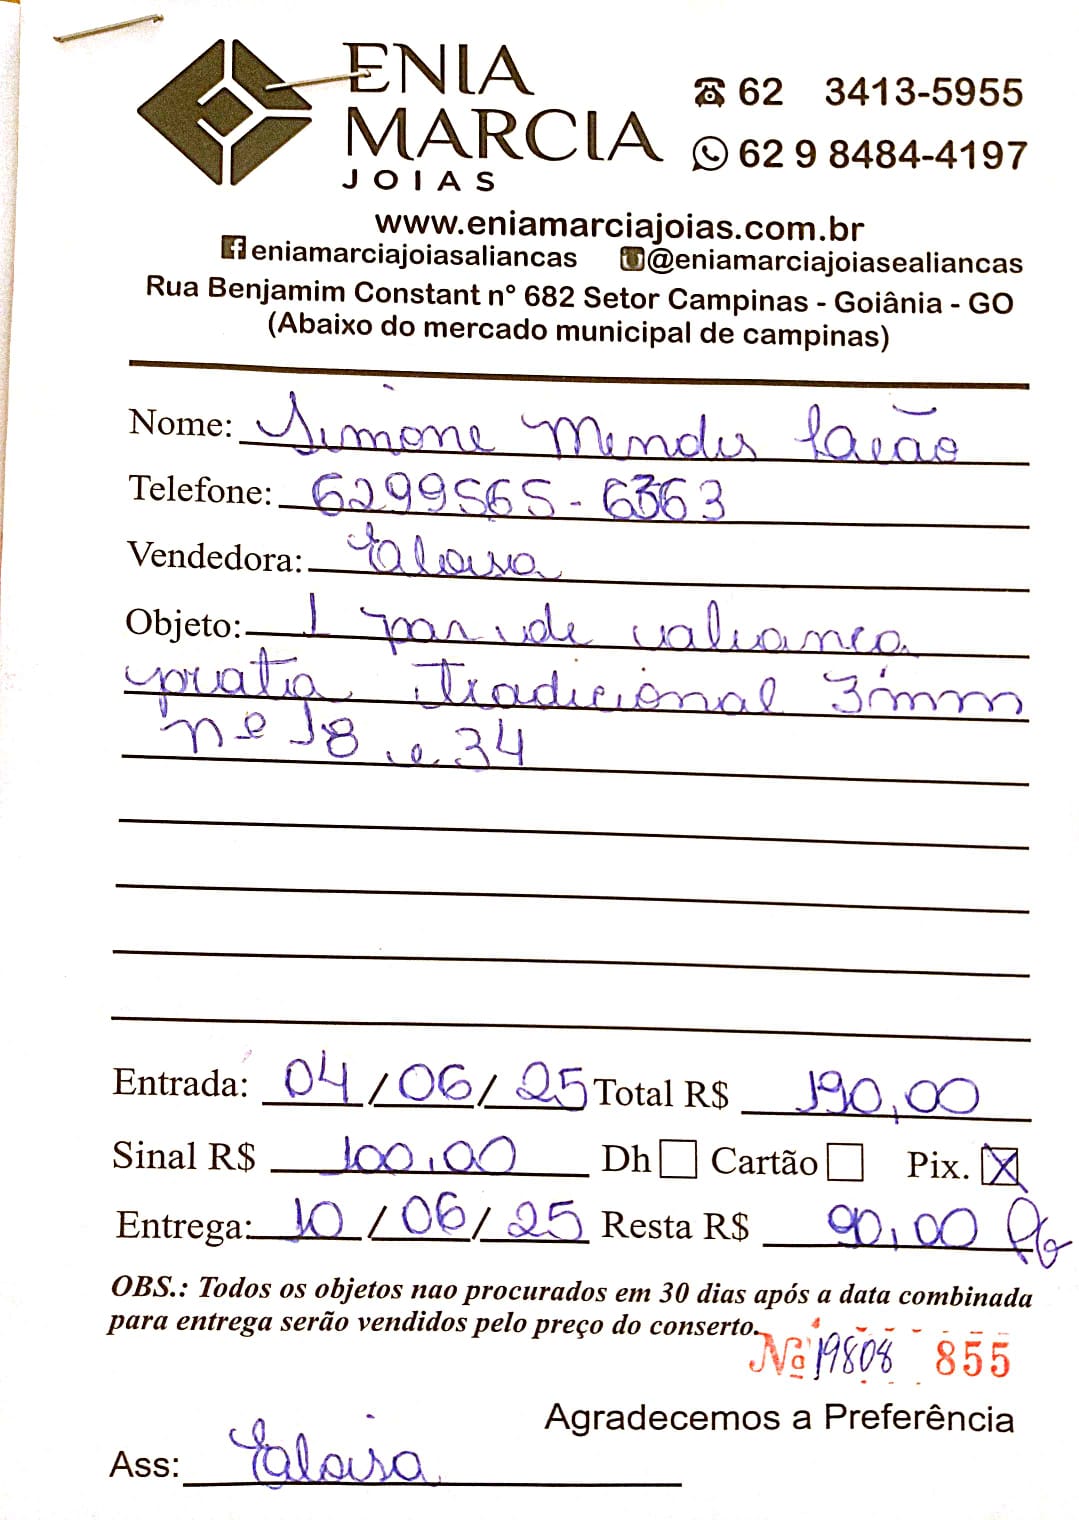 ENIA
MARCIA
JOIAS
62 3413-5955
62 9 8484-4197
www.eniamarciajoias.com.br
eniamarciajoiasaliancas @eniamarciajoiasealiancas
Rua Benjamim Constant n° 682 Setor Campinas - Goiânia - GO
(Abaixo do mercado municipal de campinas)
Nome: Simone Mendes
Telefone: 6299565-6363
Vendedora: Eloisa
Objeto: 1 par de aliança
prata tradicional 3mm
nº 18 e 34
Entrada: 04/06/25 Total R$ 190,00
Sinal R$ 100,00 Dh Cartão Pix. X
Entrega: 10/06/25 Resta R$ 90,00 Pg
OBS.: Todos os objetos nao procurados em 30 dias após a data combinada
para entrega serão vendidos pelo preço do conserto.
Nº 19808 855
Agradecemos a Preferência
Ass: Eloisa